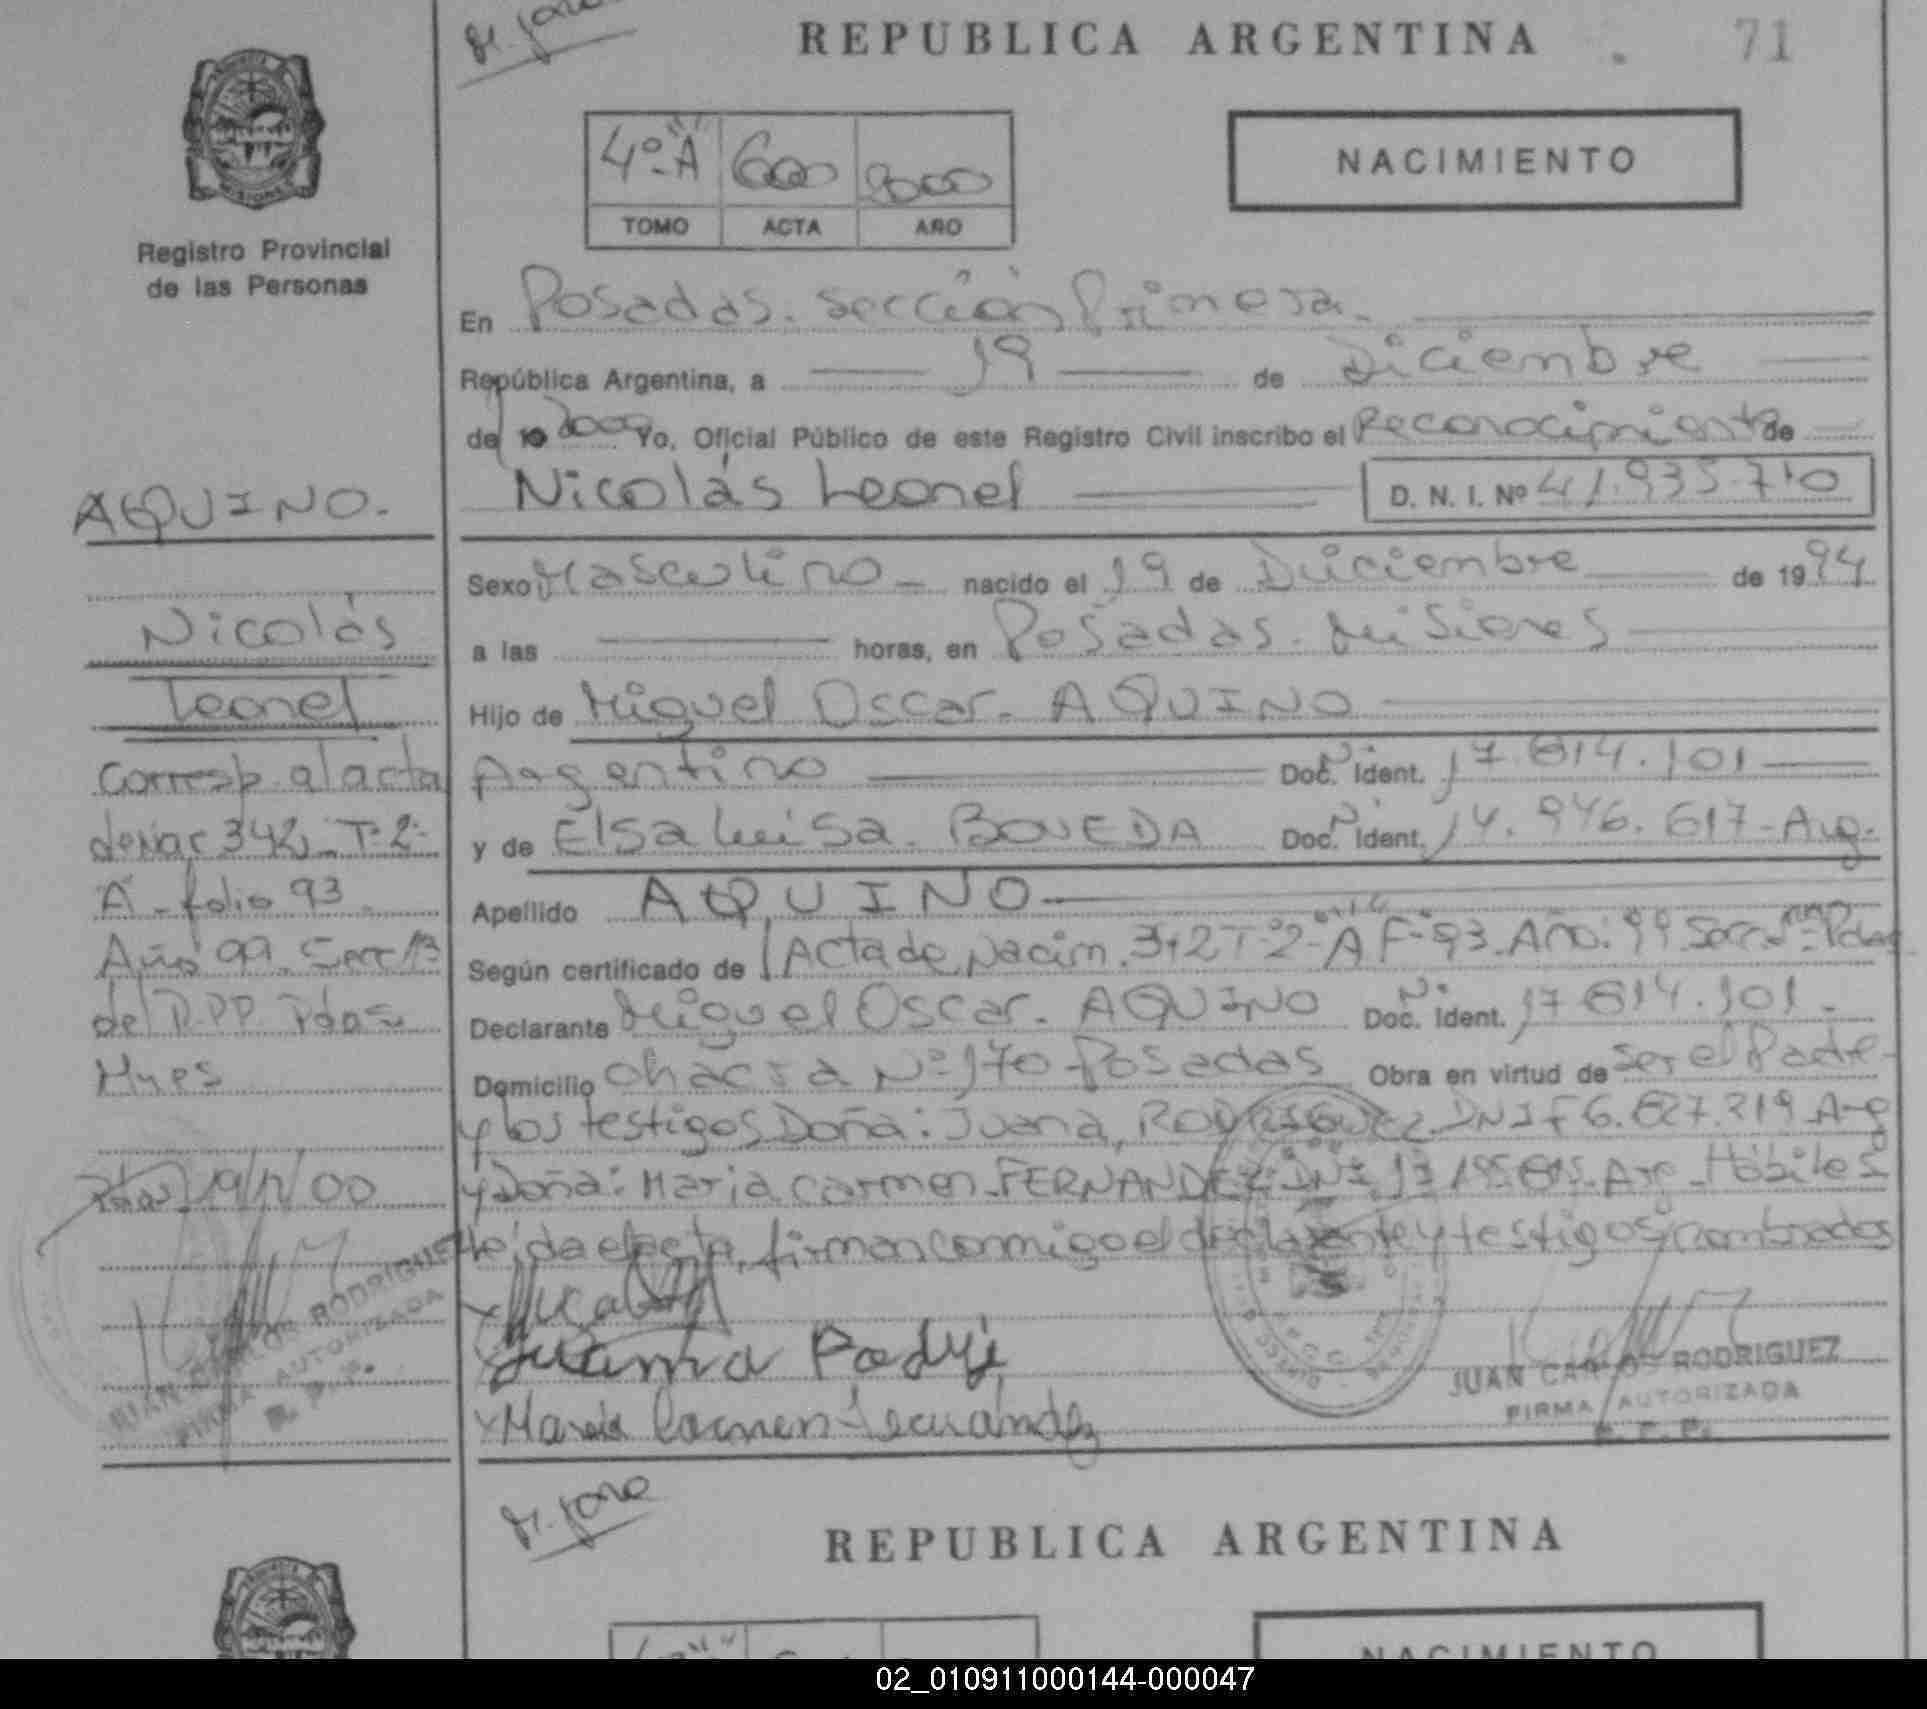 REPUBLICA ARGENTINA
71
4º "A" 600 2000
TOMO ACTA AÑO
NACIMIENTO
Registro Provincial
de las Personas
En Posadas. Sección Primera.
República Argentina, a 19 de Diciembre
de 19 2000 Yo, Oficial Público de este Registro Civil inscribo el Reconocimiento de
Nicolás Leonel D. N. I. Nº 41.935.710
Sexo Masculino nacido el 19 de Diciembre de 1994
a las horas, en Posadas. Misiones
Hijo de Miguel Oscar. AQUINO
Argentino Doc. Nº Ident. 17.814.101
y de Elsa Luisa. BOVEDA Doc. Nº Ident. 14.946.617-Arg.
Apellido AQUINO
Según certificado de Acta de Nacim. 342 T-2º-"A" Fº-93. Año: 99 Secc.
Declarante Miguel Oscar. AQUINO Doc. Nº Ident. 17.814.101.
Domicilio chacra Nº 170-Posadas Obra en virtud de ser el Padre-
y los testigos Doña: Juana, RODRIGUEZ DNI F 6.827.219 Arg
y Doña: Maria Carmen-FERNANDEZ-DNI Arg-Hábiles
leída el acta, firman conmigo el declarante y testigos nombrados
Juana Rodri
Maria Carmen Fernández
JUAN CARLOS RODRIGUEZ
FIRMA AUTORIZADA
R. P. P.
AQUINO.
Nicolás
Leonel
Corresp. al acta
de Nac 342 T-2-
A - folio 93
Año 99. Secc 1ª
del R.P.P. Pdas.
Mnes
Pdas 19/12/00
JUAN CARLOS RODRIGUEZ
FIRMA AUTORIZADA
R. P. P.
REPUBLICA ARGENTINA
NACIMIENTO
02_010911000144-000047